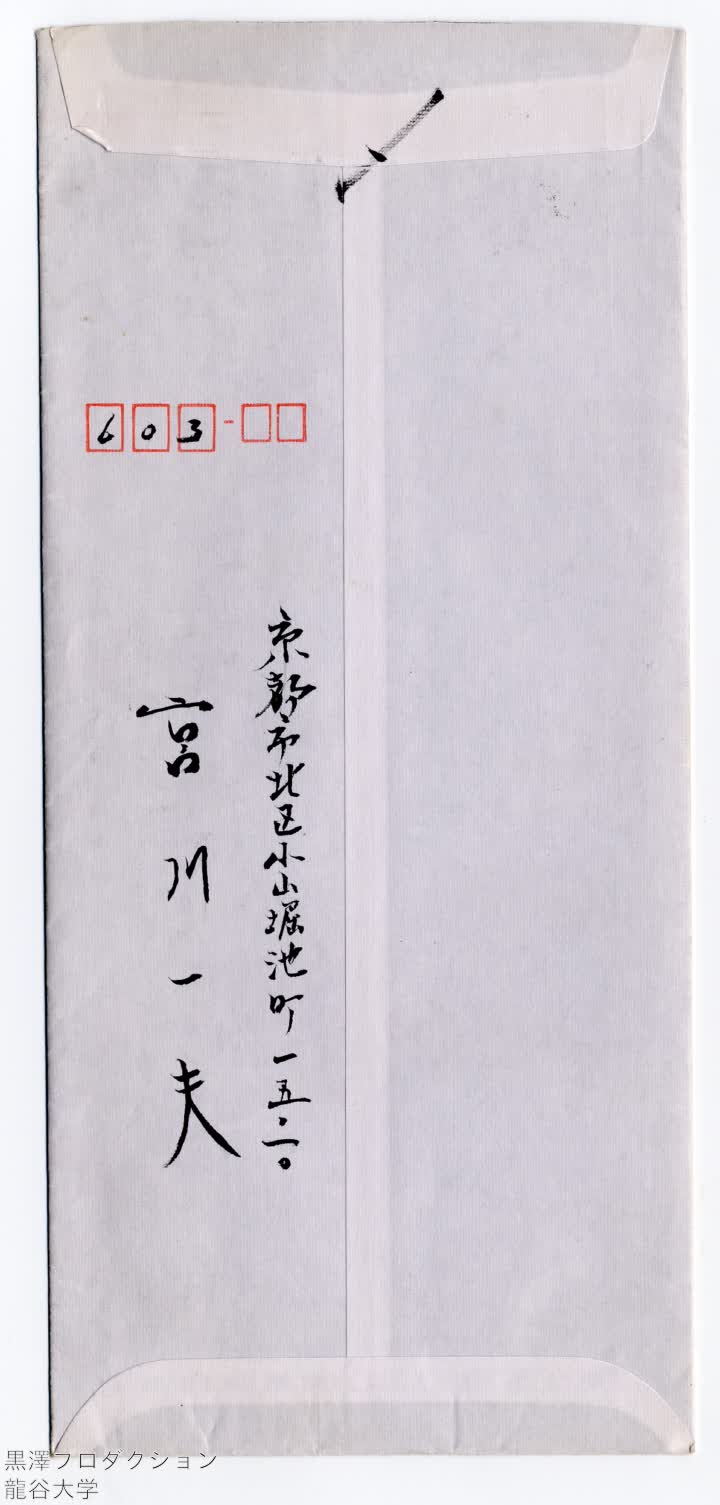 603-
京都市北区小山堀池町一五・二〇
宮川一夫
黒澤プロダクション
龍谷大学